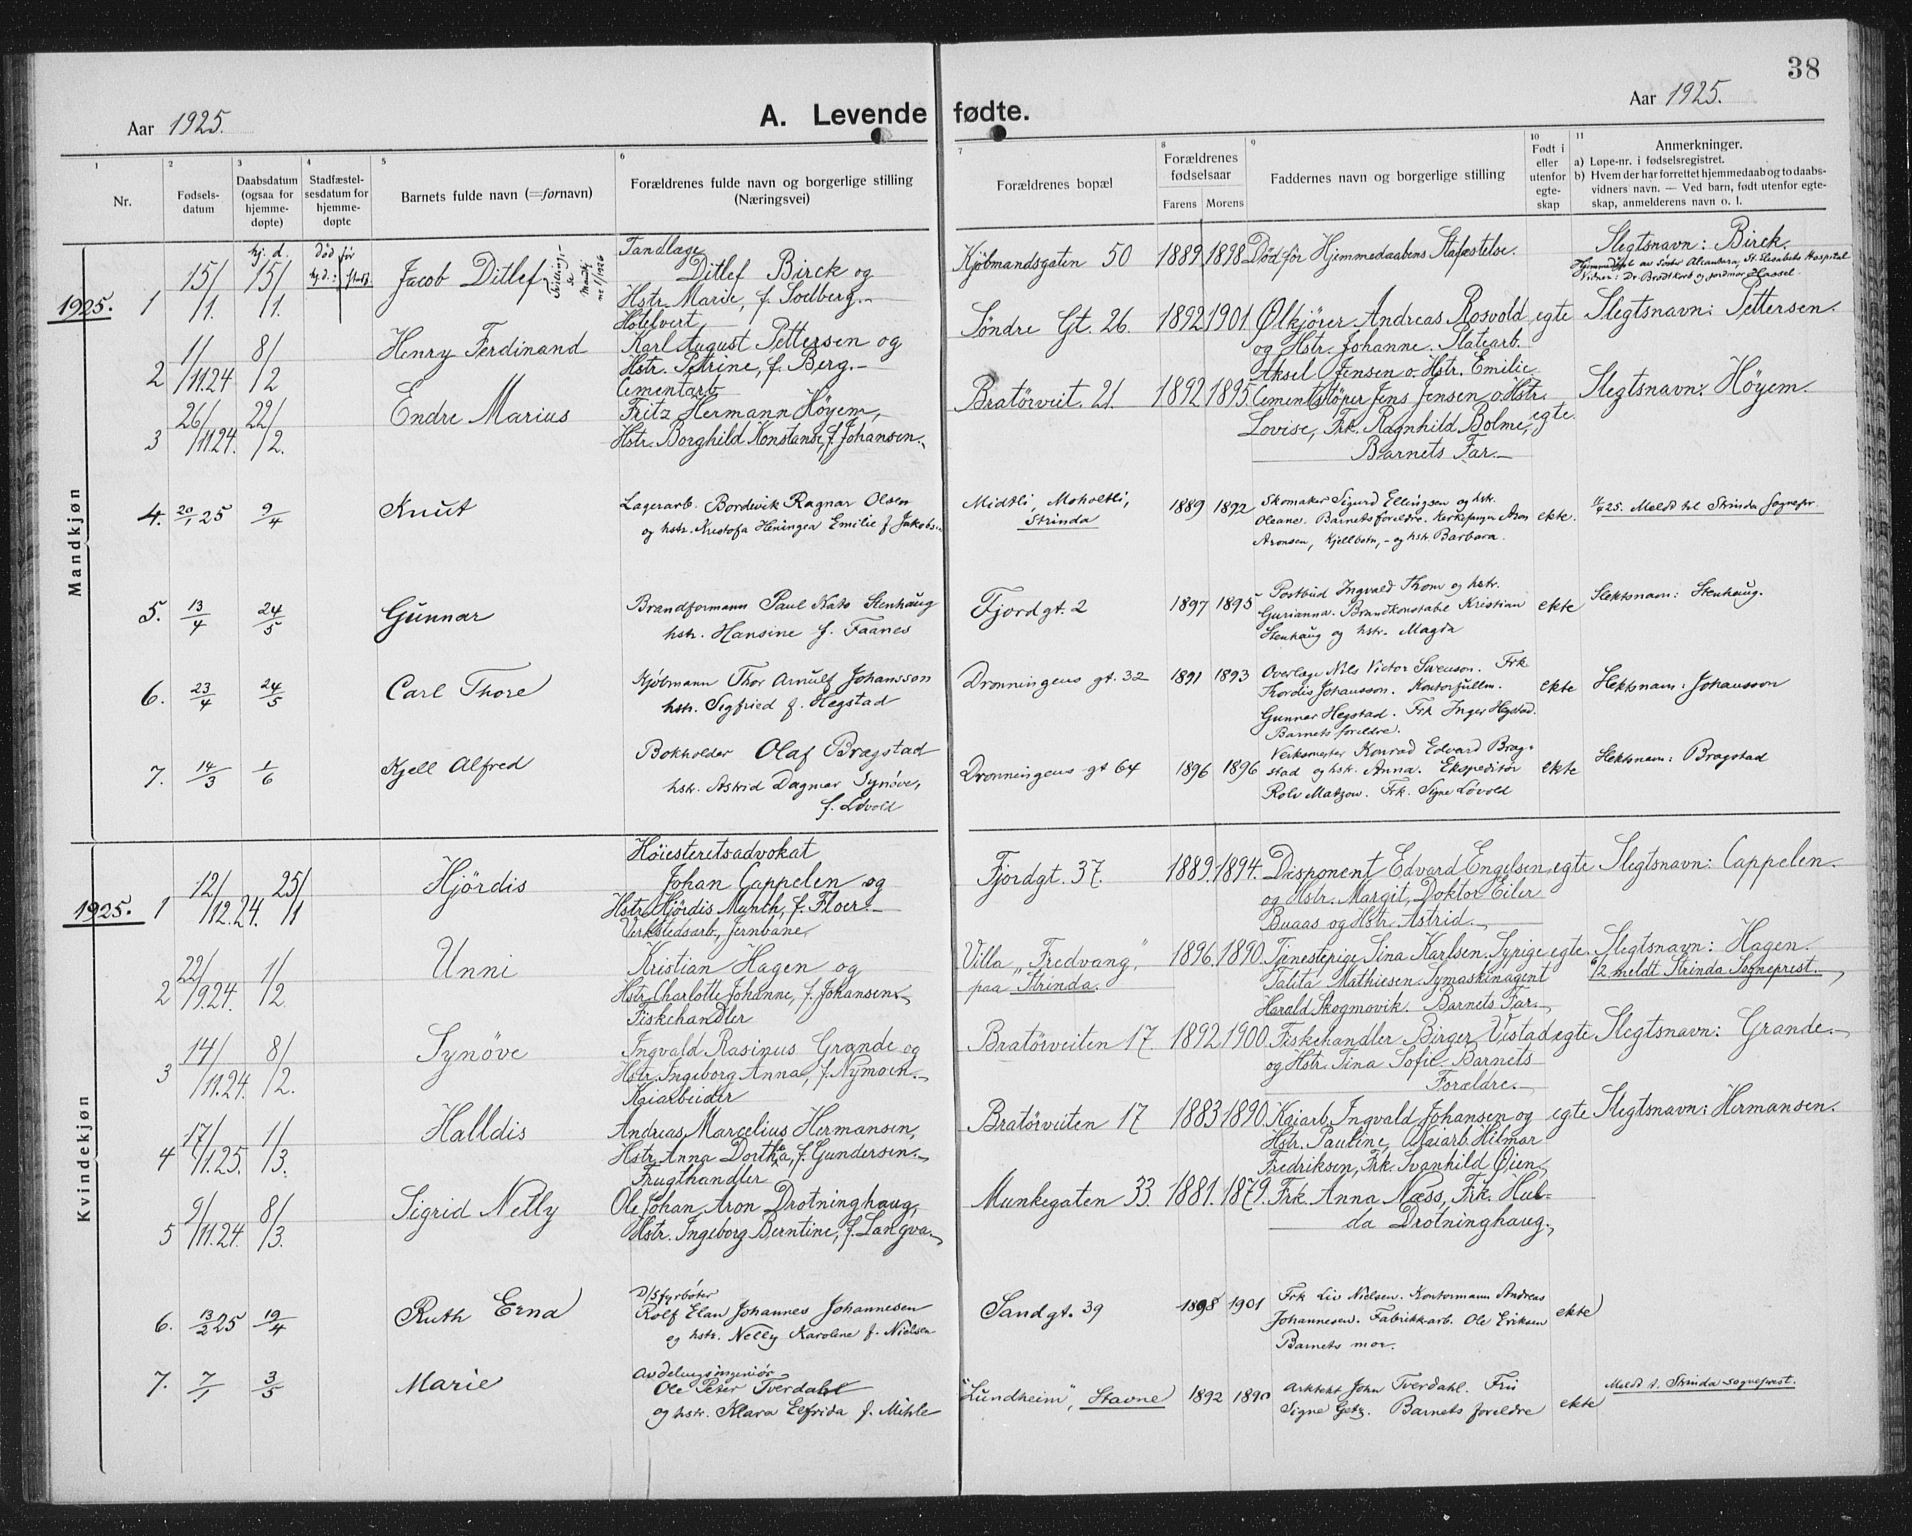 38
Aar 1925.
A. Levende fødte.
Aar 1925.
1 Nr.
2 Fødsels-
datum
3 Daabsdatum
(ogsaa for
hjemme-
døpte)
4 Stadfæstel-
sesdatum for
hjemme-
døpte
5 Barnets fulde navn (=fornavn)
6 Forældrenes fulde navn og borgerlige stilling
(Næringsvei)
7 Forældrenes bopæl
8 Forældrenes
fødselsaar
Farens Morens
9 Faddernes navn og borgerlige stilling
10 Født i
eller
utenfor
egte-
skap
11 Anmerkninger.
a) Løpe-nr. i fødselsregistret.
b) Hvem der har forrettet hjemmedaab og to daabs-
vidners navn. — Ved barn, født utenfor egte-
skap, anmelderens navn o. l.
Mandkjøn
1925.
1 15/1. hj. d. 15/1. død før hj. d.: stadf.
Jacob Ditlef
Tvilling-
se
mandkj.
nr 1/1926
Tandlæge
Ditlef Birck og
Hstr. Marie, f. Sodberg.
Kjøbmandsgaten 50
1889 1898
Død før Hjemmedaabens Stafæstelse.
Slegtsnavn: Birck.
Hjemmedøpt av Søster Alcantara, St. Elisabets Hospital
Vidner: Dr Brodtkorb og jordmor Hassel
2 1/11.24 8/2
Henry Ferdinand
Hotelvert
Karl August Pettersen og
Hstr. Petrine, f. Berg.
Søndre Gt. 26.
1892 1901.
Ølkjører Andreas Rosvold
og Hstr. Johanne. Platearb.
Aksel Jensen o. Hstr. Emilie
egte
Slegtsnavn: Pettersen.
3 26/11.24. 22/2.
Endre Marius
Cementarb
Fritz Hermann Høyem,
Hstr. Borghild Konstanse, f. Johansen.
Bratørveit. 21.
1892 1895
Cementstøper Jens Jensen o. Hstr.
Lovise, Frk. Ragnhild Bolme,
Barnets Far.
egte.
Slegtsnavn: Høyem.
4. 20/1 25 9/4
Knut
Lagerarb. Bordevik Ragnar Olsen
og hstr. Kristofa Heningea Emilie f Jakobs..
Midtli, Moholtli,
Strinda
1889 1892
Skomaker Sigurd Ellingsen og hstr.
Oleane. Barnets foreldre. Kirkesanger Aron
Aronsen, Kjellbotn, - og hstr Barbara.
ekte.
/4 25. Meldt til Strinda Sognepr.
5. 13/4 24/5
Gunnar
Brandformann Paul Kato Stenhaug
hstr. Hansine f. Faanes
Fjordgt. 2
1897 1895
Postbud Ingvald Thom og hstr.
Gurianna. Brandkonstabel Kristian
Stenhaug og hstr. Magda
ekte
Slektsnam: Stenhaug.
6. 23/4 24/5
Carl Thore
Kjøbmann Thor Arnulf Johansson
hstr. Sigfried f. Hegstad
Dronningens gt. 32
1891 1893
Overlæge Nils Victor Svenson. Frk
Tordis Johansson. Kontorfullm.
Gunnar Hegstad. Frk Inger Hegstad.
Barnets foreldre.
ekte
Slektsnam: Johansson
7. 14/3 1/6
Kjell Alfred
Bokholder Olaf Bragstad
hstr. Astrid Dagmar Synøve,
f. Løvold
Dronningens gt 64
1896 1896
Verksmester Konrad Edvard Brag-
stad og hstr. Anna. Ekspeditør
Rolv Matzow. Frk. Signe Løvold
ekte
Slektsnam: Bragstad
Kvindekjøn
1925.
1 12/12.24. 25/1
Hjördis
Høiesteretsadvokat
Johan Cappelen og
Hstr. Hjördis Munth, f. Floer.
Fjordgt. 37.
1889. 1894.
Disponent Edvard Engelsen
og Hstr. Margit, Doktor Eiler
Buaas og Hstr. Astrid.
egte
Slegtsnavn: Cappelen.
2 22/9.24. 1/2.
Unni
Verkstedsarb., Jernbane,
Kristian Hagen og
Hstr. Charlotte Johanne, f. Johansen.
Villa "Fredvang",
paa Strinda.
1896. 1890.
Tjenestepige Sina Karlsen. Sypige
Talita Mathiesen. Symaskinagent
Harald Skogmovik. Barnets Far.
egte.
Slegtsnavn: Hagen.
/2 meldt Strinda Sogneprest.
3 14/11.24. 8/2.
Synöve
Fiskehandler
Ingvald Rasinus Grande og
Hstr. Ingeborg Anna, f. Nymoen.
Bratørveiten 17.
1892 1900.
Fiskehandler Birger Vustad
og Hstr. Tina Sofie. Barnets
Forældre.
egte
Slegtsnavn: Grande.
4 17/1.25. 1/3.
Halldis
Kaiarbeider
Andreas Marcelius Hermansen,
Hstr. Anna Dorthea, f. Gundersen.
Bratørveiten 17
1883 1890.
Kaiarb. Ingvald Johansen og
Hstr. Pauline, Kaiarb. Hilmar
Fredriksen, Frk. Svanhild Øien.
egte
Slegtsnavn: Hermansen.
5 9/11.24. 8/3.
Sigrid Nelly
Frugthandler
Ole Johan Aron Drotninghaug,
Hstr. Ingeborg Berntine, f. Langva.
Munkegaten 33.
1881. 1879.
Frk. Anna Næss, Frk. Hul-
da Drotninghaug.
6. 13/2 25 19/4
Ruth Erna
D/S fyrbøter
Rolf Elan Johannes Johannesen
og hstr. Nelly Karoline f. Nielsen
Sandgt. 39
1898 1901
Frk Liv Nielsen. Kontormann Andreas
Johannesen. Fabrikkarb. Ole Eriksen
Barnets mor.
ekte
7. 7/1 3/5
Marie
Avdelingsingeniør
Ole Peter Tverdahl
og hstr. Klara Elfrida f. Mihle
"Lundheim", Stavne
1892 1890
Arkitekt John Tverdahl. Fru
Signe Getz. Barnets foreldre
ekte
Meldt t. Strinda sogneprest.